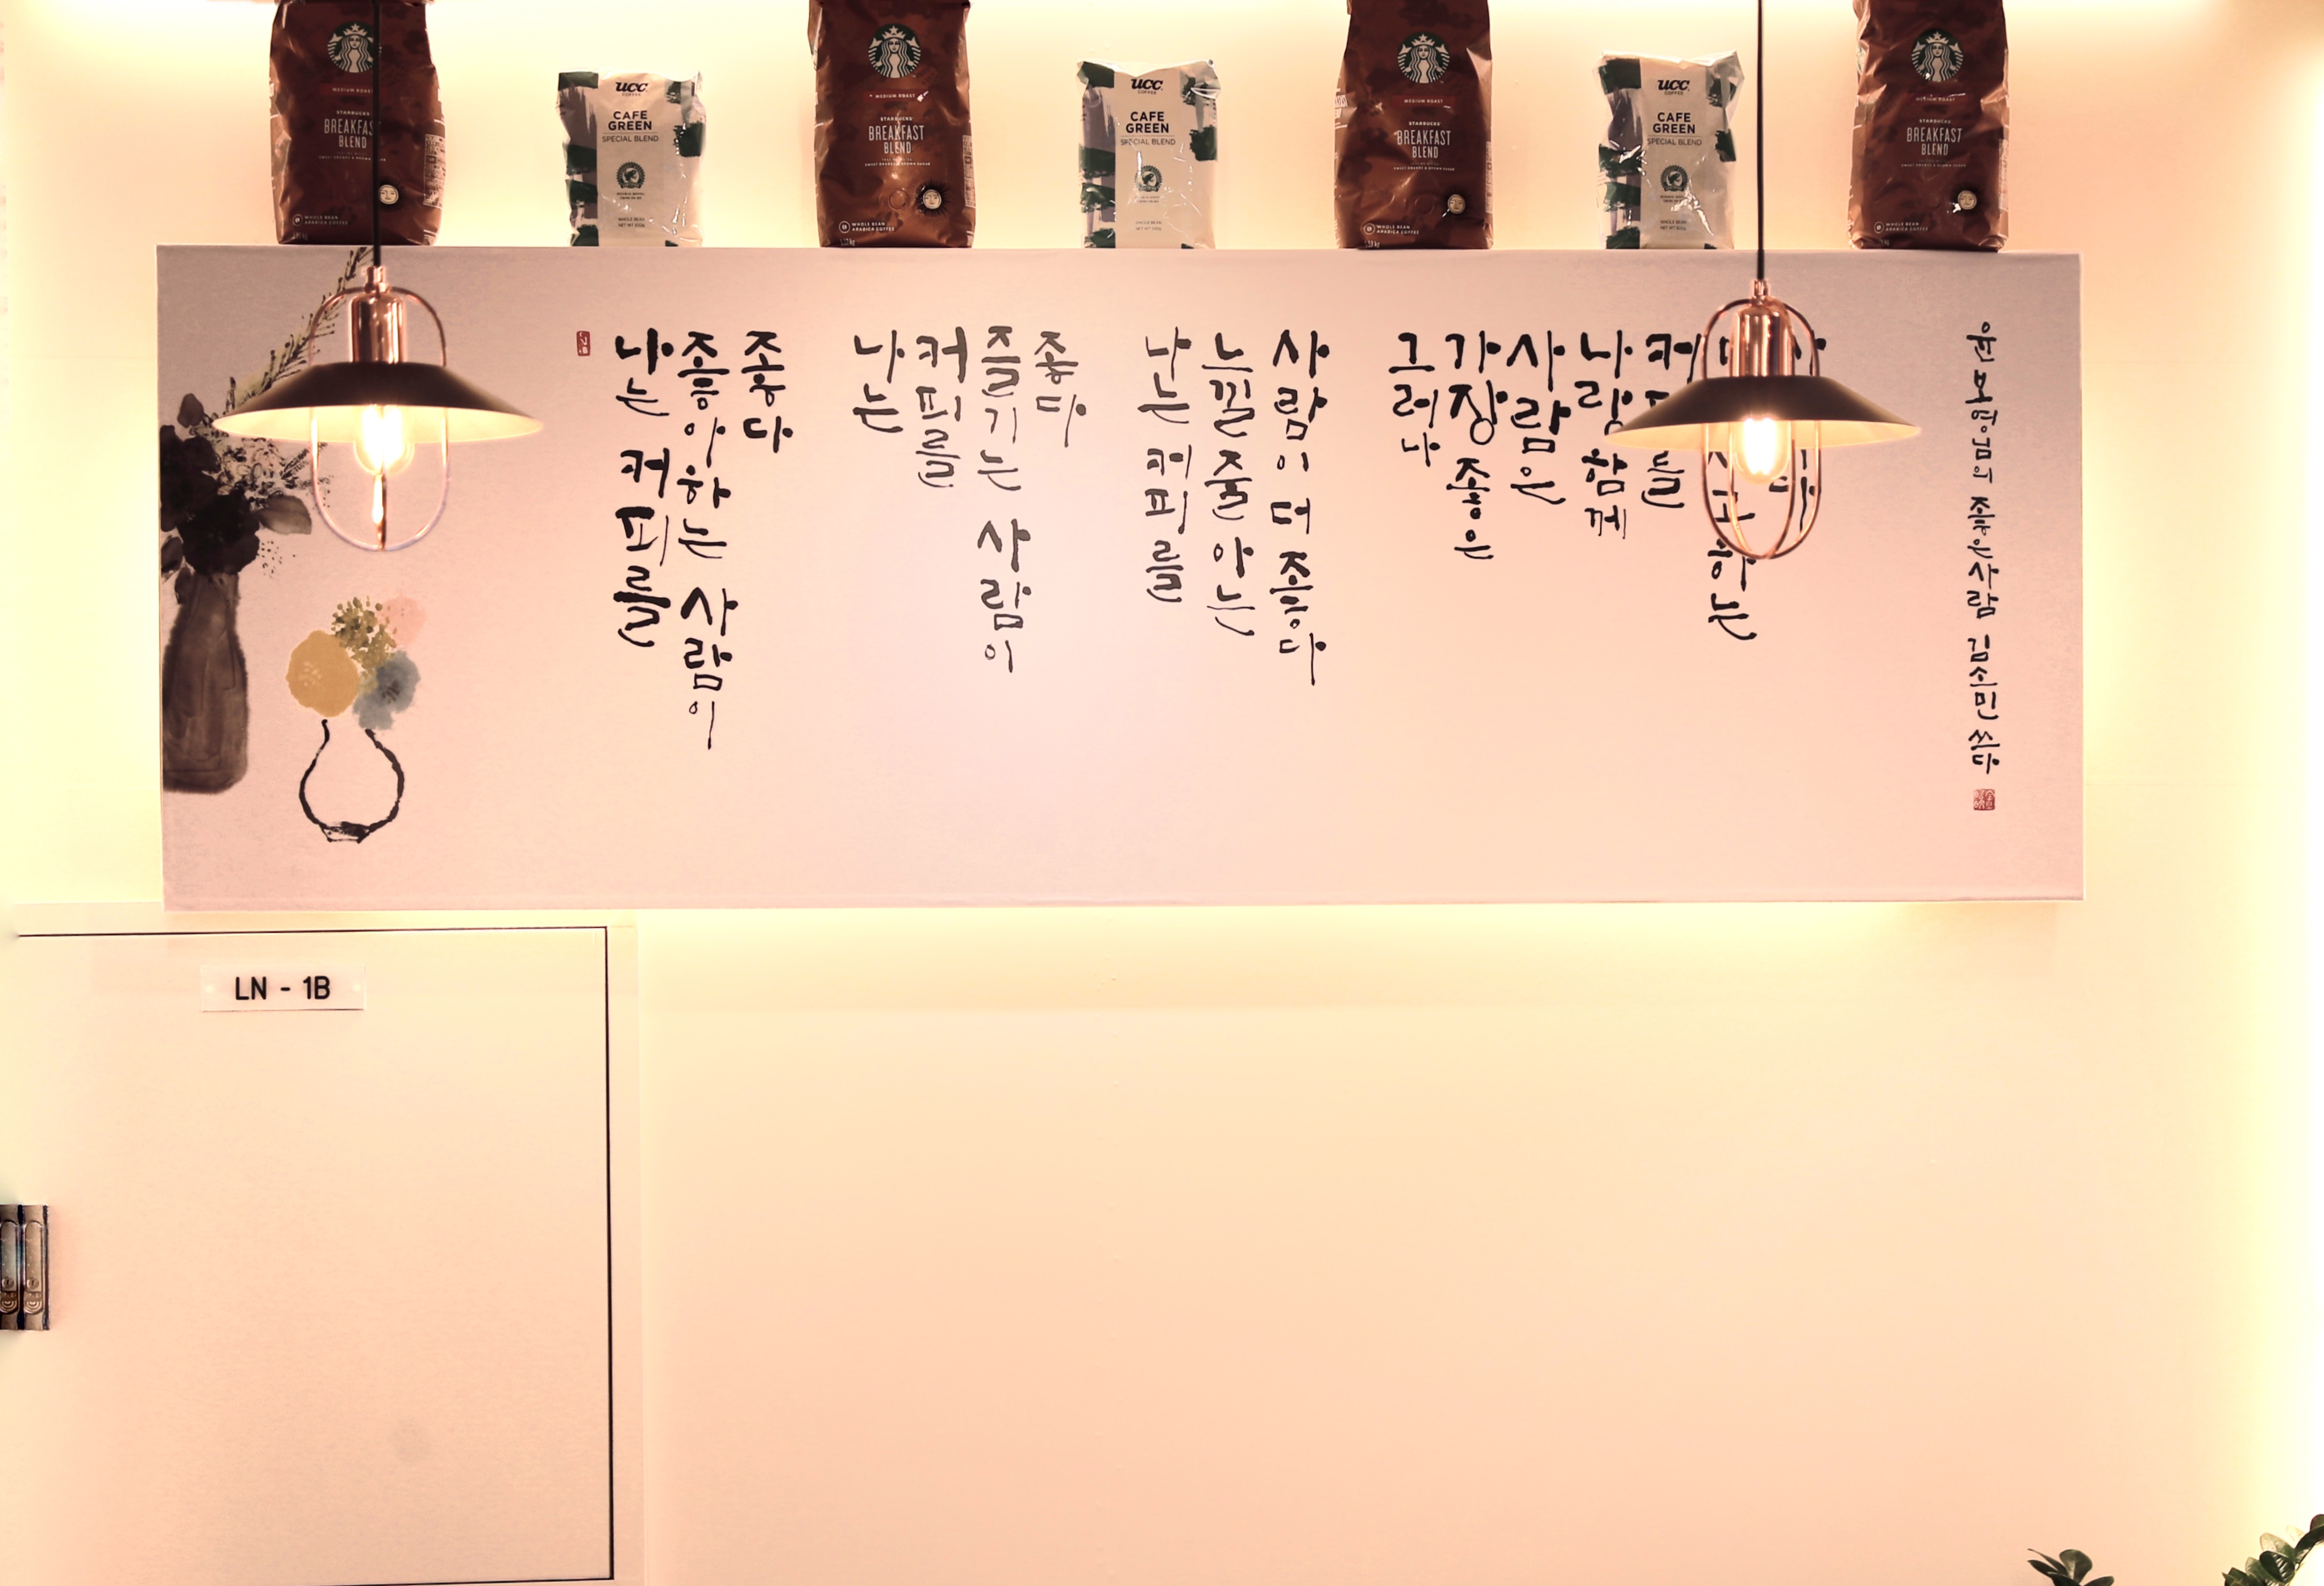 STARBUCKS
BREAKFAST
BLEND
WHOLE BEAN
ARABICA COFFEE
ucc
COFFEE
CAFE
GREEN
SPECIAL BLEND
WHOLE BEAN
MEDIUM ROAST
STARBUCKS
BREAKFAST
BLEND
WHOLE BEAN
ARABICA COFFEE
ucc
COFFEE
CAFE
GREEN
SPECIAL BLEND
MEDIUM ROAST
STARBUCKS
BREAKFAST
BLEND
WHOLE BEAN
ARABICA COFFEE
ucc
COFFEE
CAFE
GREEN
SPECIAL BLEND
WHOLE BEAN
MEDIUM ROAST
STARBUCKS
BREAKFAST
BLEND
WHOLE BEAN
ARABICA COFFEE
나는 커피를
좋아하는 사람이
좋다
나는
커피를
즐기는 사람이
좋다
나는 커피를
느낄 줄 아는
사람이 더 좋다
그러나
가장 좋은
사람은
나랑 함께
커피를
하는
윤보영님의 좋은사람 쓰다
LN - 1B